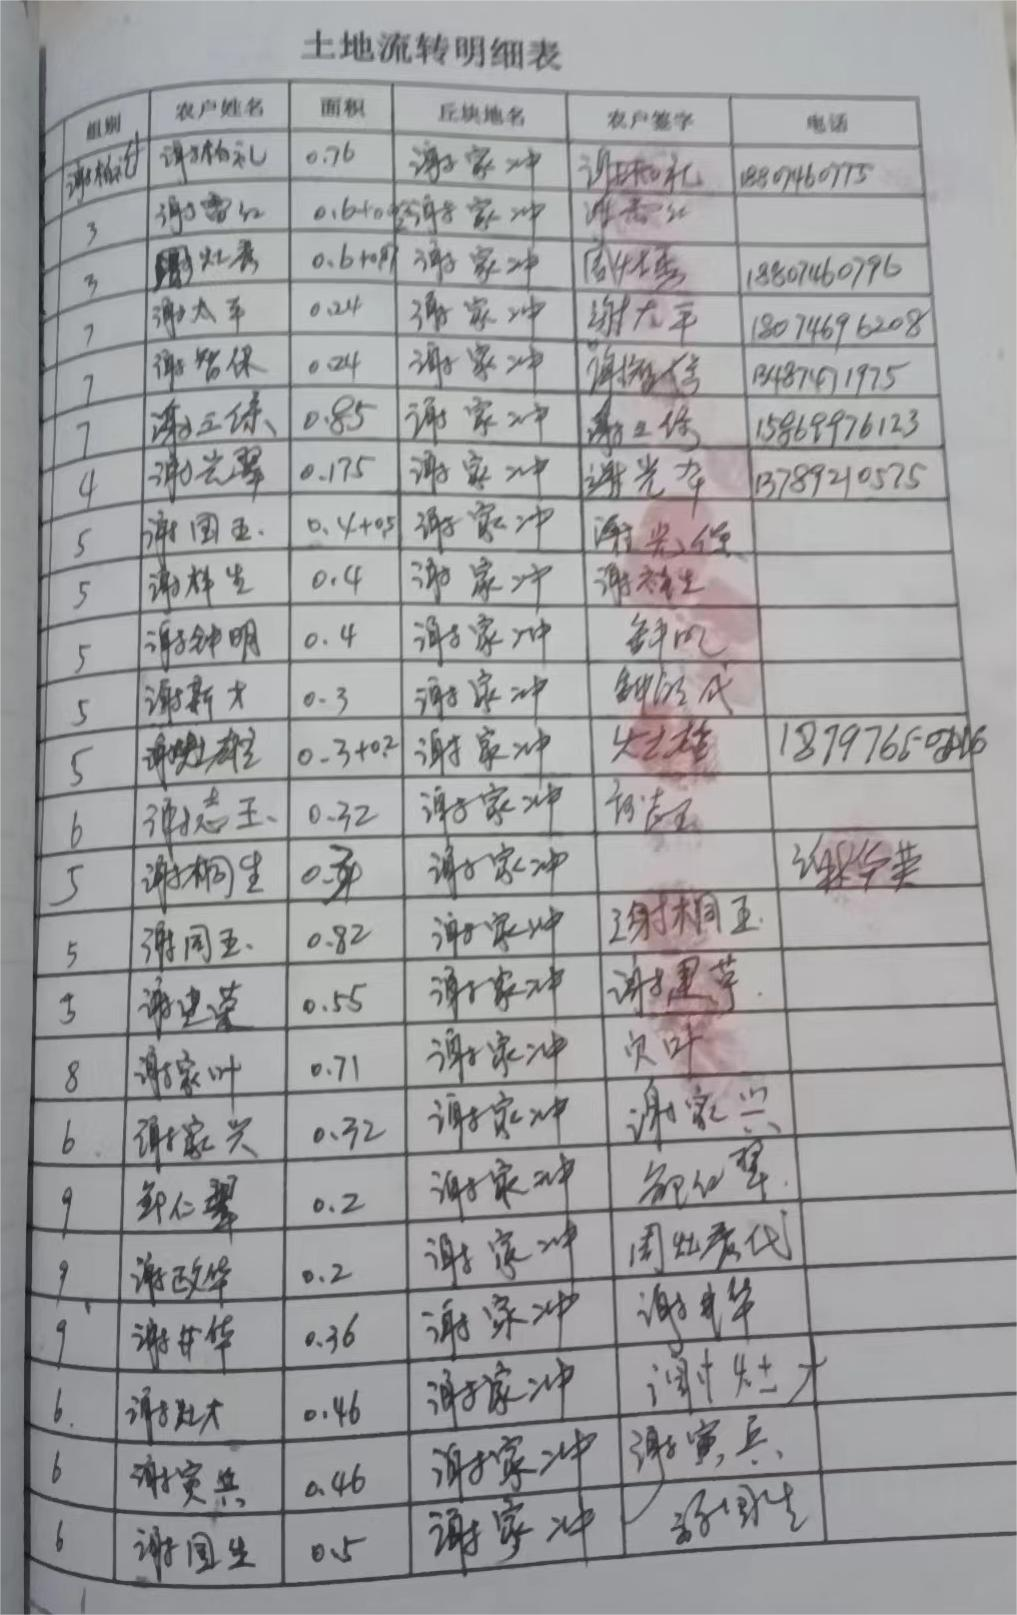 土地流转明细表
组别 农户姓名 面积 丘块地名 农户签字 电话
谢柏礼 谢柏礼 0.76 谢家冲 谢柏礼 18807460775
3 谢雪红 0.6+0 谢家冲
3 灶秀 0.6+0 谢家冲 周灶秀 18807460796
7 谢太平 0.24 谢家冲 谢太平 18074696208
7 谢智保 0.24 谢家冲 谢智保 13487471975
7 谢立保 0.85 谢家冲 谢立保 15869976123
4 谢光翠 0.175 谢家冲 谢光 13789210575
5 谢国玉 0.4+0.5 谢家冲 谢光保
5 谢祥生 0.4 谢家冲 谢祥生
5 谢钟明 0.4 谢家冲 钟明
5 谢新才 0.3 谢家冲 代
5 谢灶雄 0.3+0.2 谢家冲 灶雄
6 谢志玉 0.32 谢家冲 谢志玉
5 谢桐生 谢家冲 谢华英
5 谢同玉 0.82 谢家冲 谢桐玉
3 谢建荣 0.55 谢家冲 谢
8 谢家叶 0.71 谢家冲 叶
6 谢家兴 0.32 谢家冲 谢家兴
9 仁翠 0.2 谢家冲 翠
9 谢政华 0.2 谢家冲 周灶秀代
9 谢甘华 0.36 谢家冲 谢甘华
6 谢灶才 0.46 谢家冲 谢灶才
6 谢寅兵 0.46 谢家冲 谢寅兵
6 谢国生 0.5 谢家冲 谢国生